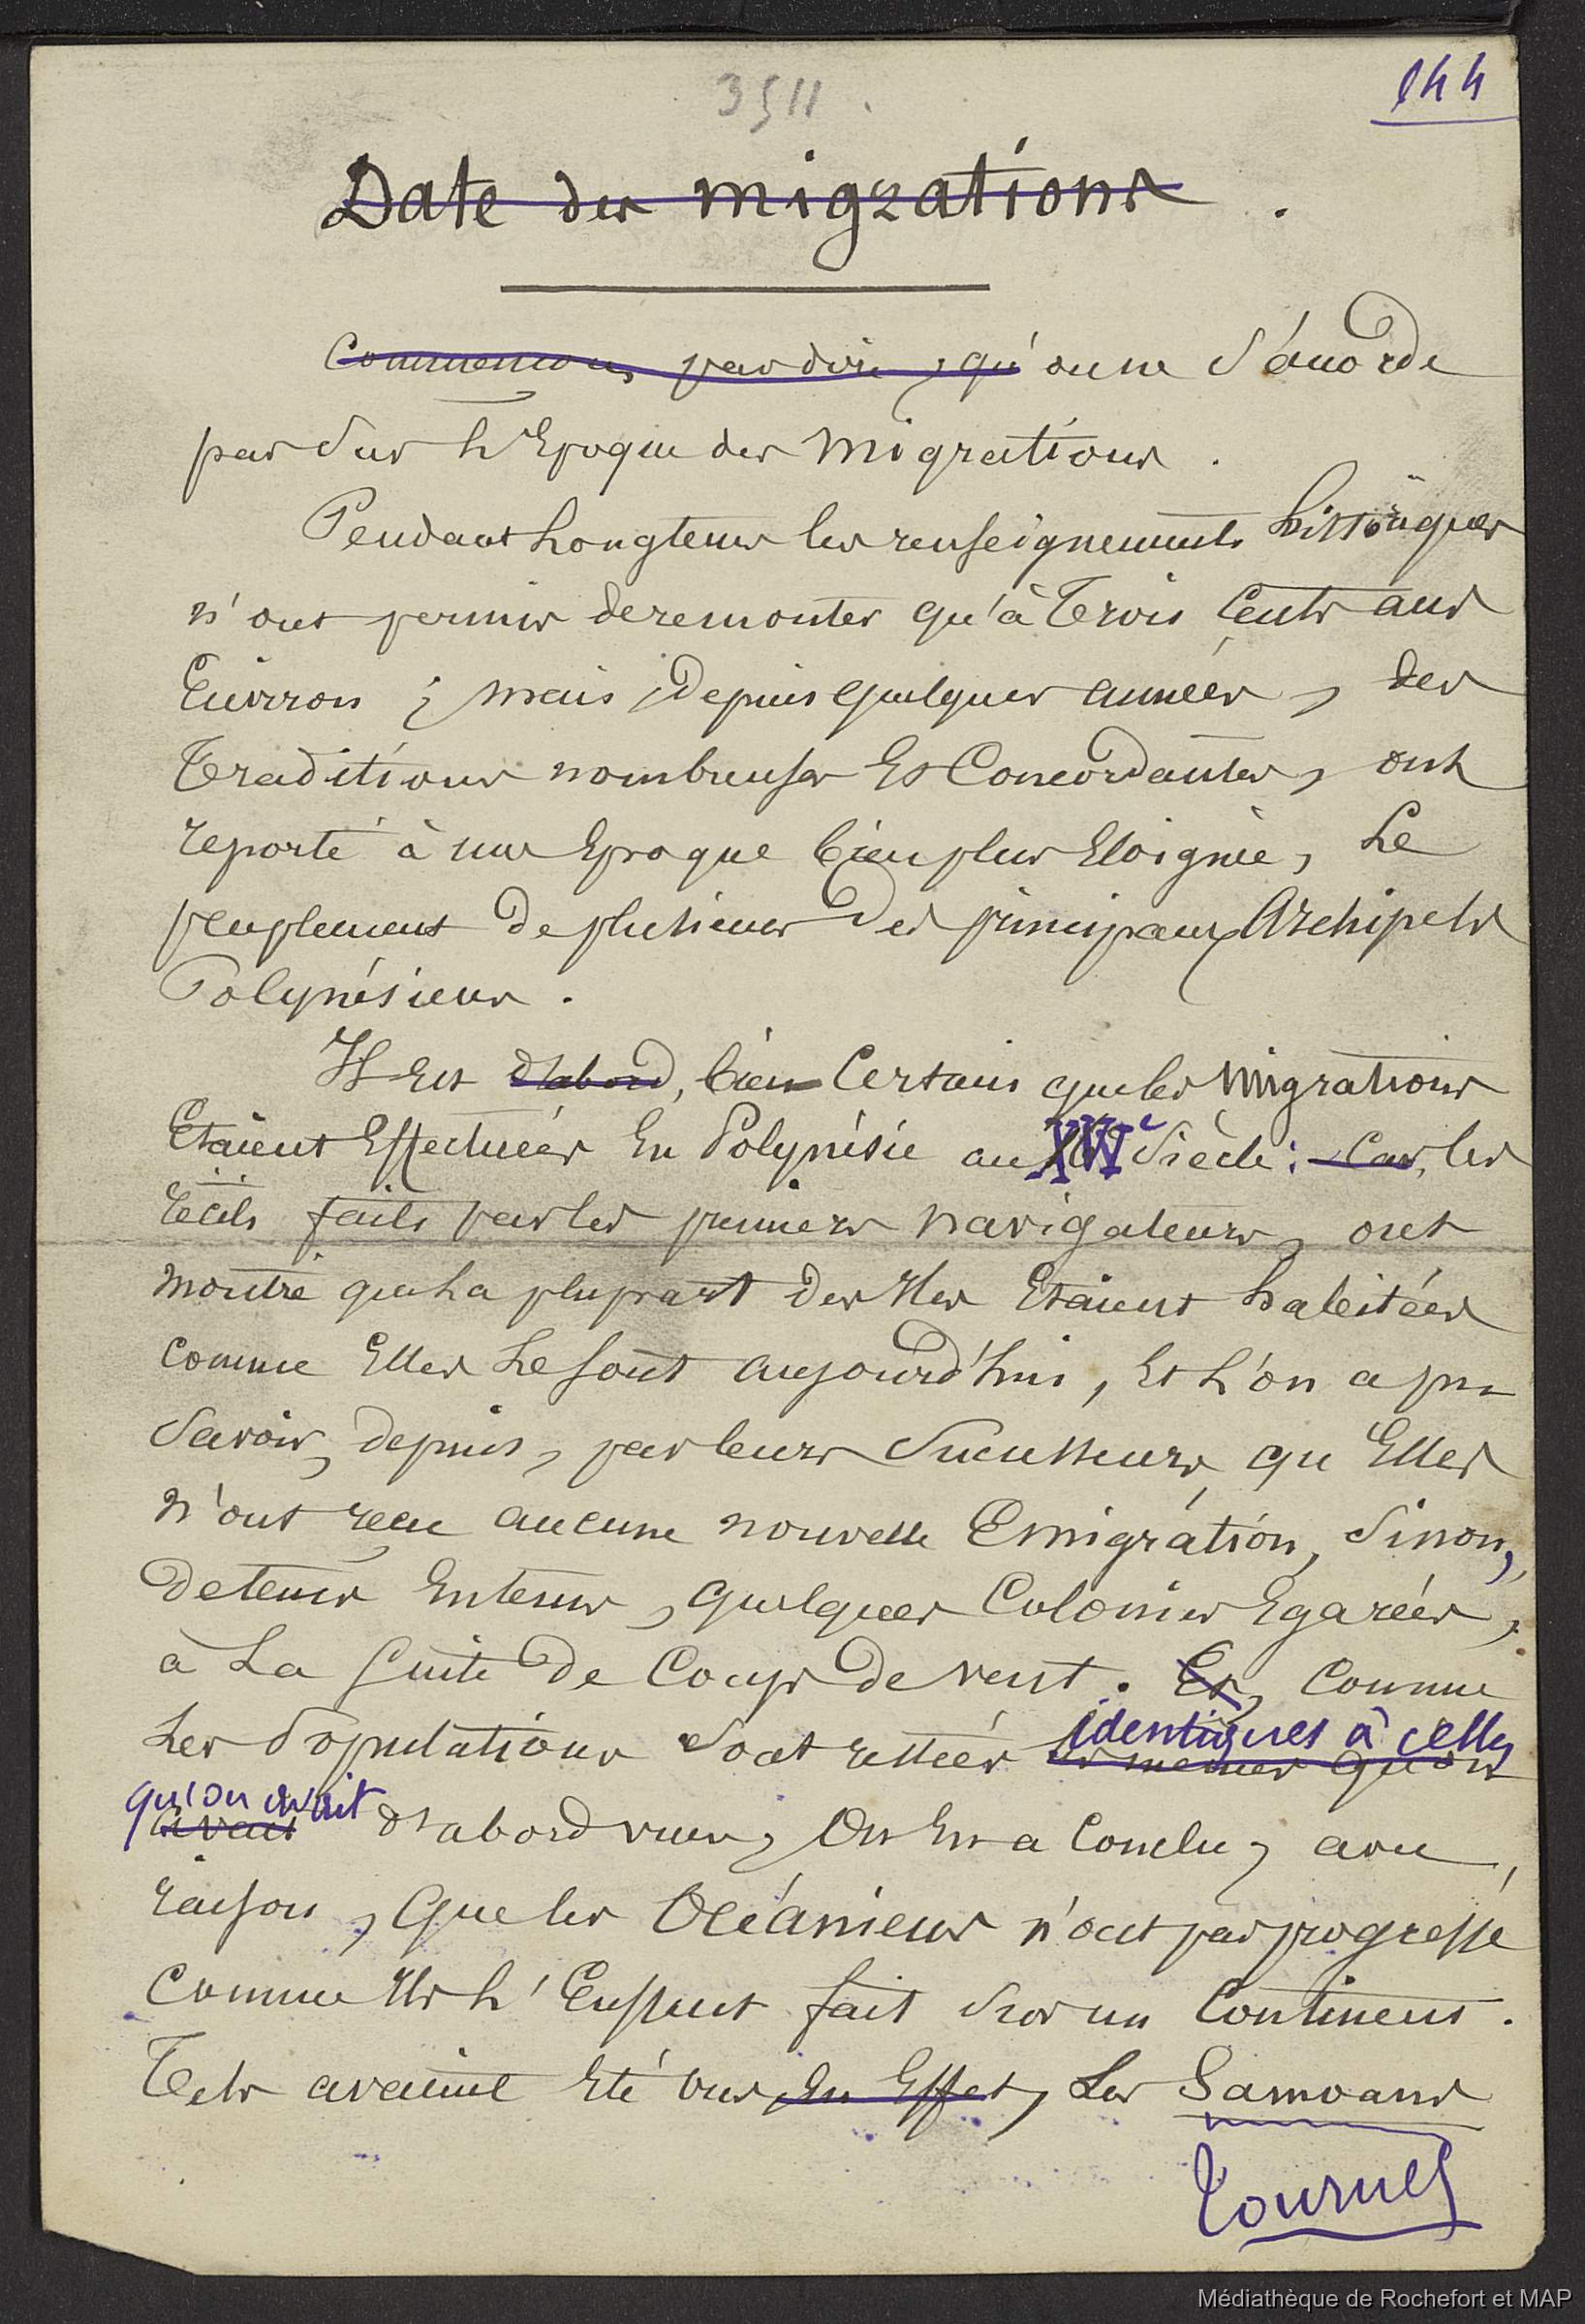 3511.
144
Date des migrations.
Commençons par dire, qu'on ne s'accorde
pas sur l'Epoque des migrations.
Pendant longtems les renseignements historiques
n'ont permis de remonter qu'à trois cents ans
Environ ; mais, depuis quelques années, des
traditions nombreuses Et Concordantes, ont
reporté à une Epoque bien plus Eloignée, le
peuplement de plusieurs des principaux Archipels
Polynésiens.
Il Est d'abord, bien Certain que les migrations
Etaient Effectuées En Polynésie au XVIe Siècle : Car, les
récits faits par les premiers navigateurs, ont
montré que la plupart des Iles Etaient habitées
comme Elles le sont aujourd'hui, Et l'on a pu
savoir, depuis, par leurs Successeurs, qu'Elles
n'ont reçu aucune nouvelle Emigration, sinon,
de tems En tems, quelques Colonies Egarées,
à la suite de Coups de vent. Et, comme
les populations sont restées les mêmes qu'on identiques à celles
qu'on avait avait d'abord vues, On En a Conclu, avec
raison, que les Océaniens n'ont pas progressé
comme Ils l'Eussent fait sur un Continent.
Tels avaient Eté vus, En Effet, les Samoans
Tournez
Médiathèque de Rochefort et MAP